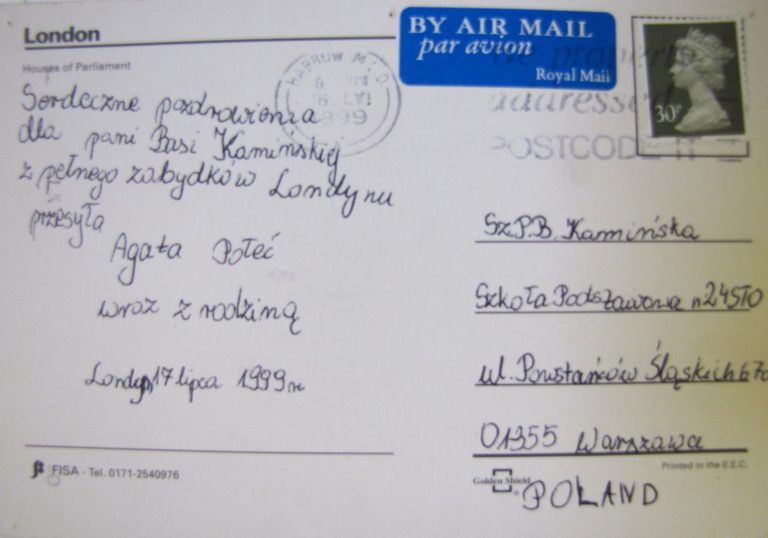 London
Houses of Parliament
Serdeczne pozdrowienia
dla pani Basi Kamińskiej
z pełnego zabydków Londynu
przesyła
Agata Połeć
wraz z rodziną
Londyn, 17 lipca 1999r
FISA - Tel. 0171-2540976
BY AIR MAIL
par avion
Royal Mail
HARROW M.L.O.
6 PM
1999
30P
addressed
POSTCODE IT
Sz.P.B. Kamińska
Szkoła Podstawowa n
ul. Powstańców Śląskich 67c
01355 Warszawa
Printed in the E.E.C.
Golden Shield
POLAND